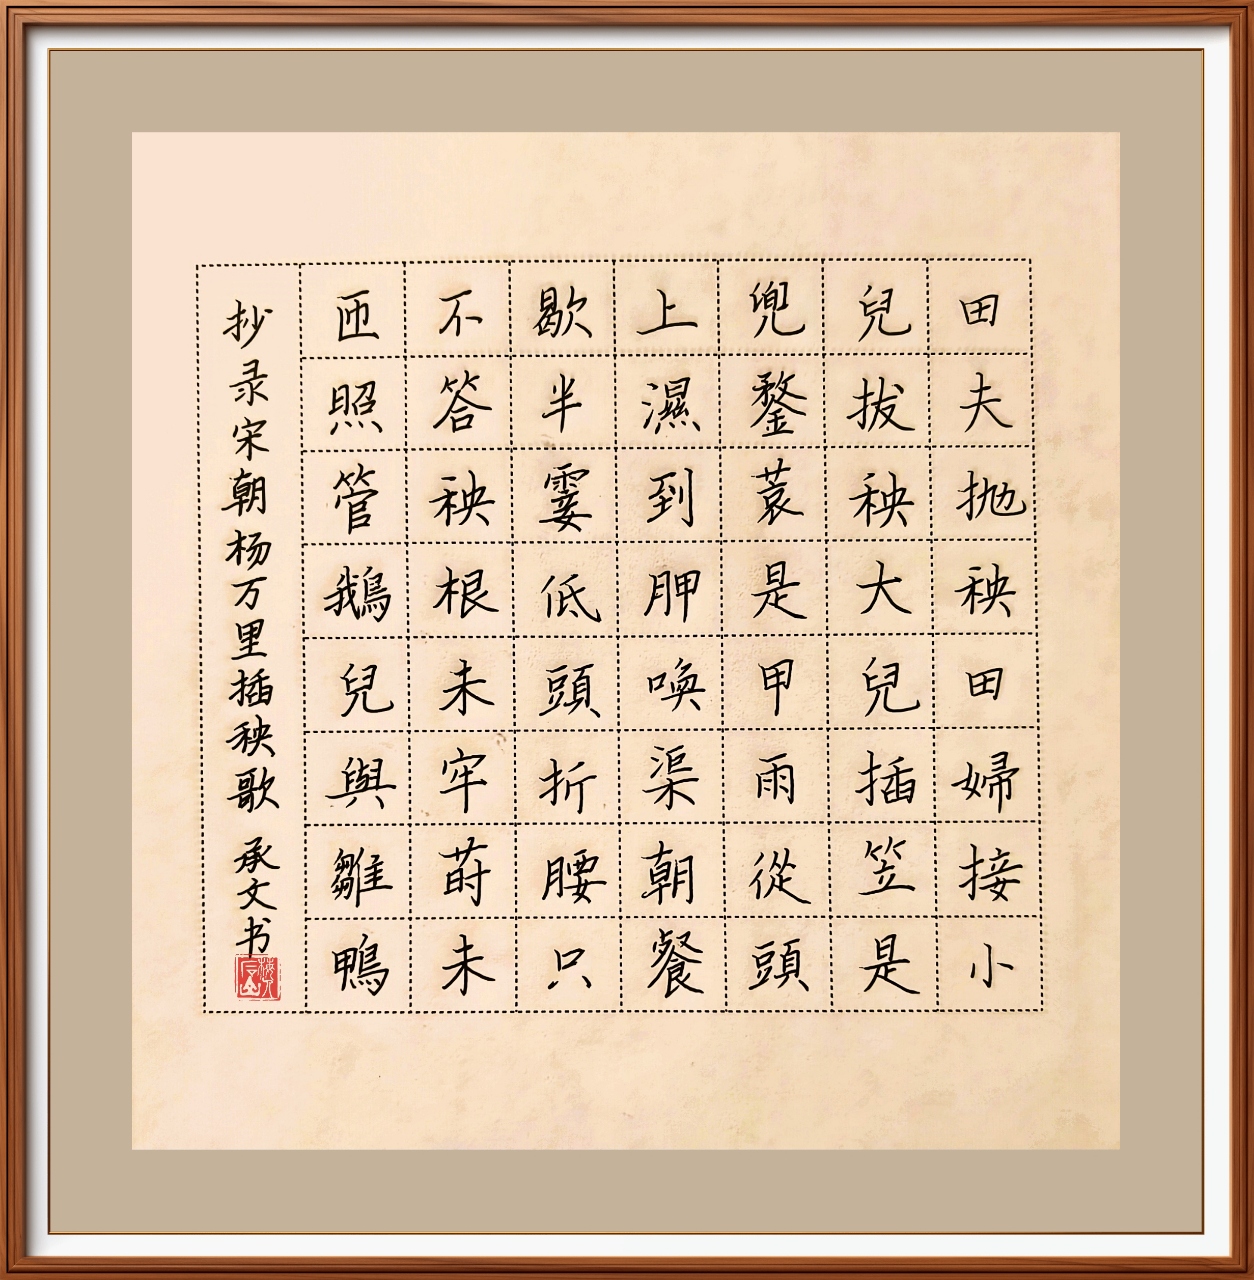 田夫抛秧田婦接小
兒拔秧大兒插笠是
兜鍪蓑是甲雨從頭
上濕到胛喚渠朝餐
歇半霎低頭折腰只
不答秧根未牢莳未
匝照管鵝兒與雛鴨
抄录宋朝杨万里插秧歌 承文书